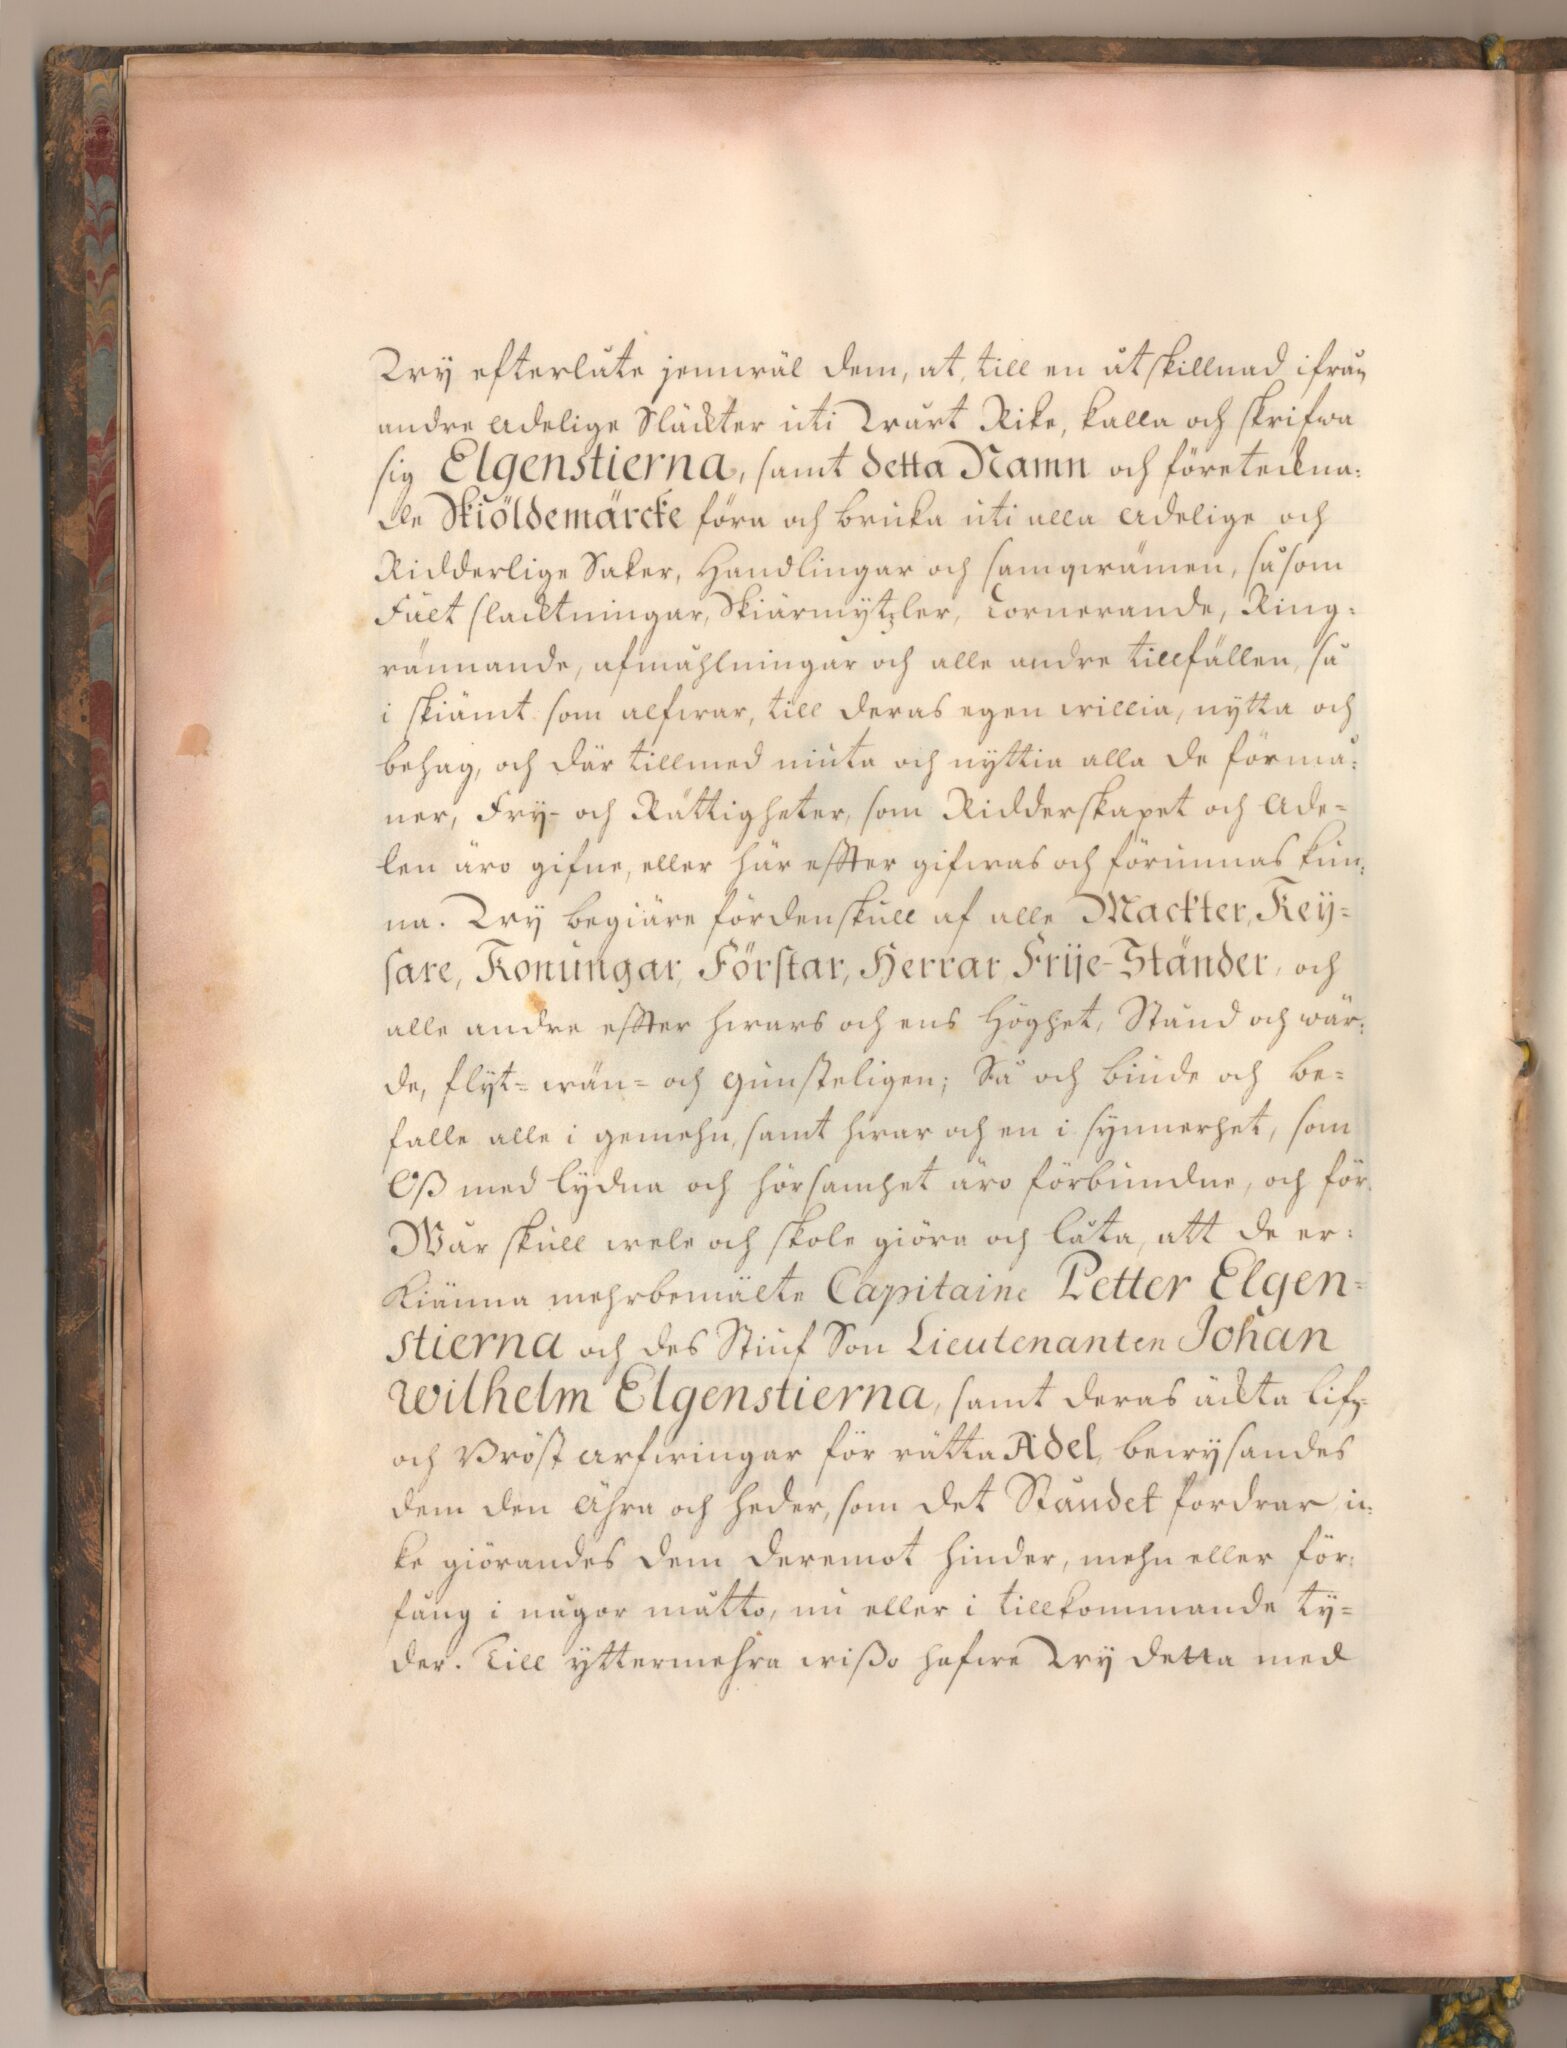 Wy efterlåte jemwäl dem, at, till en åtskillnad ifrån
andre Adelige Släckter uti Wårt Rike, kalla och skrifwa
sig Elgenstierna, samt detta Namn och företeckna:
de Skiöldemärcke föra och bruka uti alla Adelige och
Ridderlige Saker, Handlingar och samqwämen, såsom
Fält slacktningar, Skiärmytzler, Tornerande, Ring:
rännande, afmåhlningar och alle andre tillfällen, så
i skiämt som alfwar, till deras egen willia, nytta och
behag, och där tillmed niuta och nyttia alla de förmå:
ner, Fry- och Rättigheter, som Ridderskapet och Ade-
len äro gifne, eller här effter gifwas och förunnas kun:
na. Wy begiäre fördenskull af alle Mackter, Key-
sare, Konungar, Förstar, Herrar, Frije-Ständer, och
alle andre effter hwars och ens Höghet, Stånd och wär:
de, flyt= wän= och gunsteligen; Så och biude och be-
falle alle i gemehn, samt hwar och en i synnerhet, som
Oß med lydna och hörsamhet äro förbundne, och för
Wår skull wele och skole giöra och låta, att de er:
kiänna mehrbemälte Capitaine Petter Elgen-
stierna och des Stiuf Son Lieutenanten Johan
Wilhelm Elgenstierna, samt deras äckta Lifz-
och Bröst arfwingar för rätta Adel, bewysandes
dem den Ähra och heder, som det Ståndet fordrar, ic-
ke giörandes dem deremot hinder, mehn eller för:
fång i någor måtto, nu eller i tillkommande ty=
der. Till yttermehra wißo hafwe Wy detta med